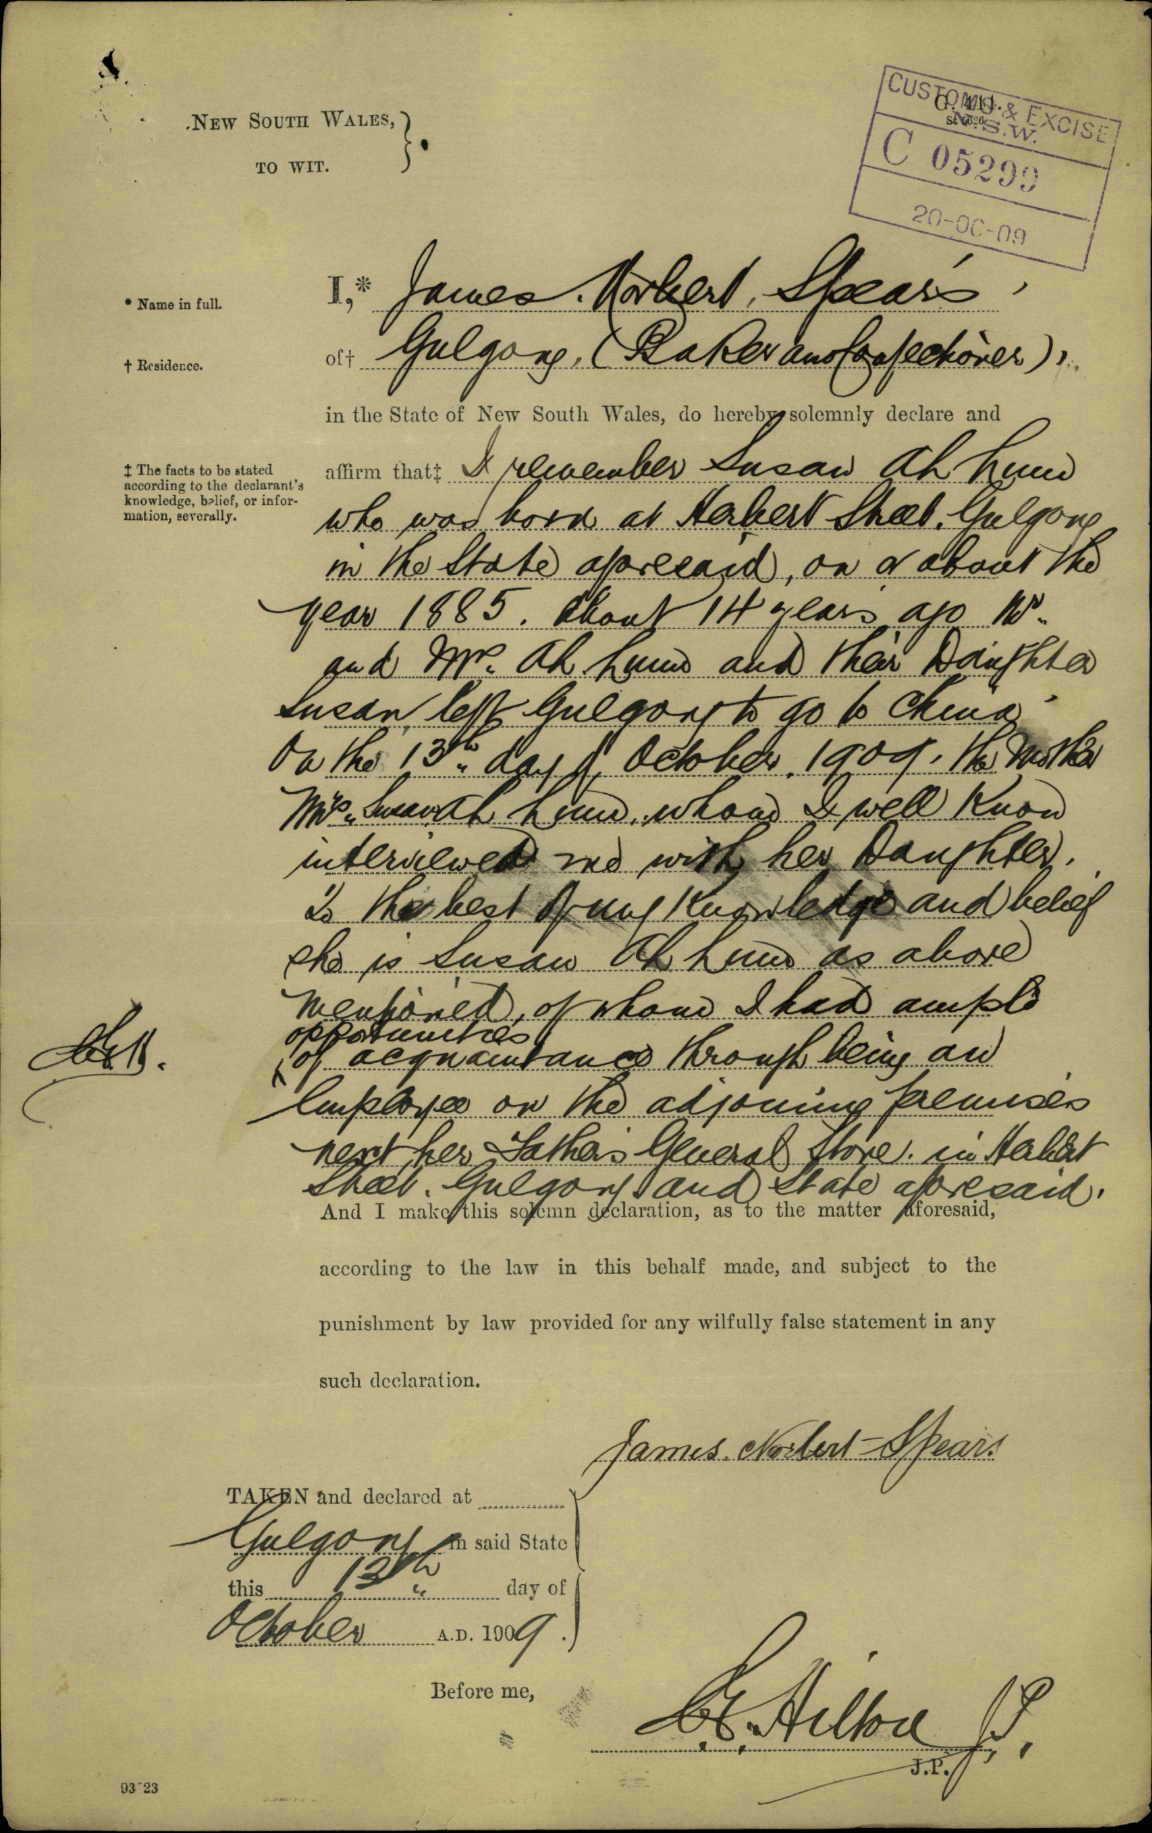 NEW SOUTH WALES,
TO WIT.
CUSTOMS & EXCISE
N.S.W.
C 05299
20-OC-09
* Name in full.
I,* James. Norbert, Spears,
† Residence.
of† Gulgong, (Baker and Confectioner),
in the State of New South Wales, do hereby solemnly declare and
‡ The facts to be stated
according to the declarant's
knowledge, belief, or infor-
mation, severally.
affirm that‡ I remember Susan Ah Lum
who was born at Herbert Street. Gulgong
in the State aforesaid, on or about the
year 1885. About 14 years ago Mr.
and Mrs. Ah Lum and their Daughter
Susan, left Gulgong to go to China
On the 13th day of October, 1909, the Mother
Mrs. Susan Ah Lum, whom I well Know
interviewed me with her Daughter.
To the best of my Knowledge and belief
she is Susan Ah Lum as above
mentioned, of whom I had ample
opportunities
of acquaintance through being an
Employee on the adjoining premises
next her Father's General Store. in Herbert
Street. Gulgong and State aforesaid.
And I make this solemn declaration, as to the matter aforesaid,
according to the law in this behalf made, and subject to the
punishment by law provided for any wilfully false statement in any
such declaration.
James. Norbert Spears
TAKEN and declared at
Gulgong in said State
this 13th day of
October A.D. 1909.
Before me,
C.E. Hilton J.P.
J.P.
93-23